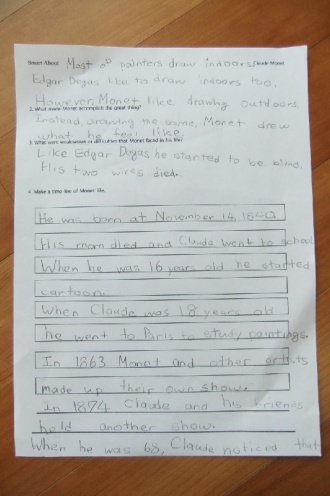 Smart About Most of painters draw indoors. Claude Monet
Edgar Degas like to draw indoors too.
However, Monet like drawing outdoors.
2. What made Monet accomplish the great thing?
Instead, drawing the same, Monet drew
what he feel like.
3. What were weaknesses or difficulties that Monet faced in his life?
Like Edgar Degas he started to be blind.
His two wives died.
4. Make a time line of Monet' life.
He was born at November 14, 1840
His mom died and Claude went to school
When he was 16 years old he started
cartoon.
When Claude was 18 years old
he went to Paris to study paintings.
In 1863 Monet and other artists
made up their own show.
In 1874, Claude and his friends
held another show.
When he was 68, Claude noticed that